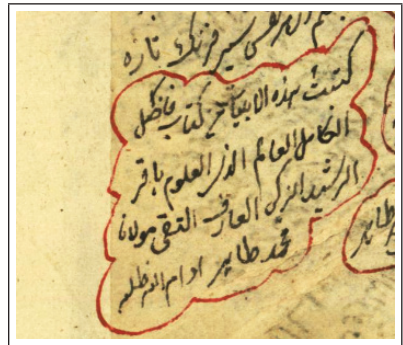 سیر فرنک تازه
کتبت هذه الابیات فی کتاب فاضل
الکامل العالم الذی العلوم باقر
الرشید الزکی العارف التقی مولانا
محمد طاهر ادام الله ظله
طاهر